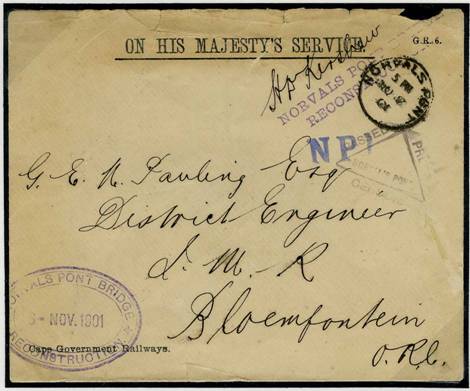 ON HIS MAJESTY'S SERVICE.
G.R. 6.
NORVALS PONT
RECONS
NORVALS PONT
5 PM
NP
PONT
G. E. N. Pauling Esq
District Engineer
I. M. R
Bloemfontein
O.R.C.
NORVALS PONT BRIDGE
5- NOV. 1901
RECONSTRUCTION
Cape Government Railways.